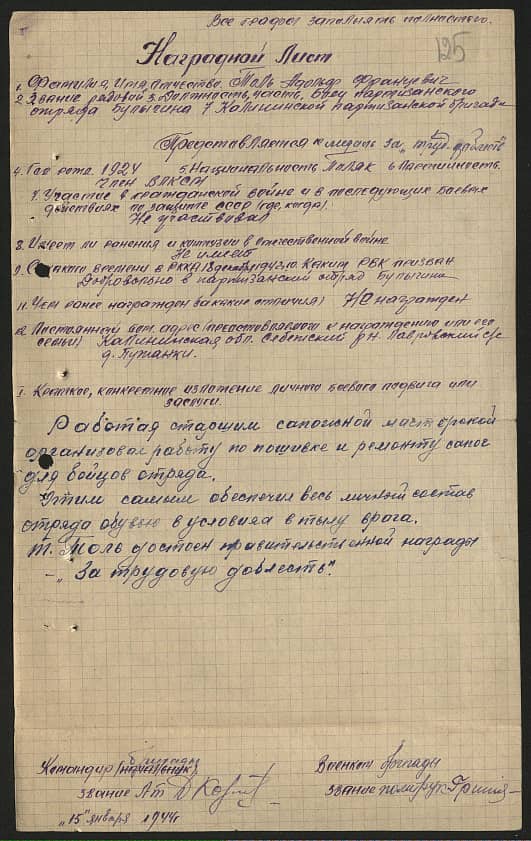 Все графы заполнять полностью.
125
Наградной Лист
1. Фамилия, имя, отчество. Толь Адольф Францевич
2. Звание рядовой 3. Должность, часть. Боец партизанского
отряда Булыгина 7 Калининской партизанской бригады
Представляется к медаль „За труд. доблесть"
4. Год рожд. 1924 5. Национальность Поляк 6 Партийность.
Член ВЛКСМ
7. Участие в гражданской войне и в последующих боевых
действиях по защите СССР (где, когда)
Не участвовал
8. Имеет ли ранения и контузии в отечественной войне
Не имеет
9. С какого времени в РККА 1942 10. Каким РВК призван
Добровольно в партизанский отряд Булыгина
11. Чем ранее награжден за какие отличия) Не награжден
12. Постоянный дом. адрес (представляемого к награждению или его
семьи) Калининская обл. Себежский р-н. Лавровский с/с
д. Пужанки.
I. Краткое, конкретное изложение личного боевого подвига или
заслуги.
Работая старшим сапожной мастерской
организовал работу по пошивке и ремонту сапог
для бойцов отряда.
Этим самым обеспечил весь личный состав
отряда обувью в условиях в тылу врага.
т. Толь достоен правительственной награды
– „За трудовую доблесть".
бригады
Командир (начальник) Военком бригады
звание звание политрук
„15" января 1944г